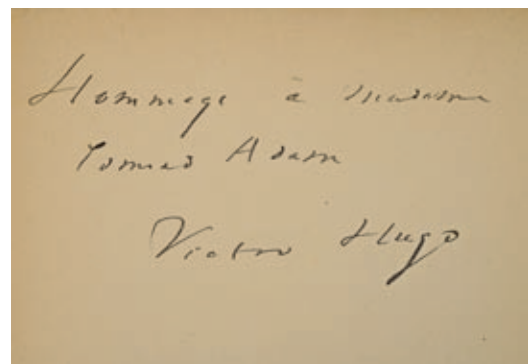 Hommage à madame
Edmond Adam
Victor Hugo